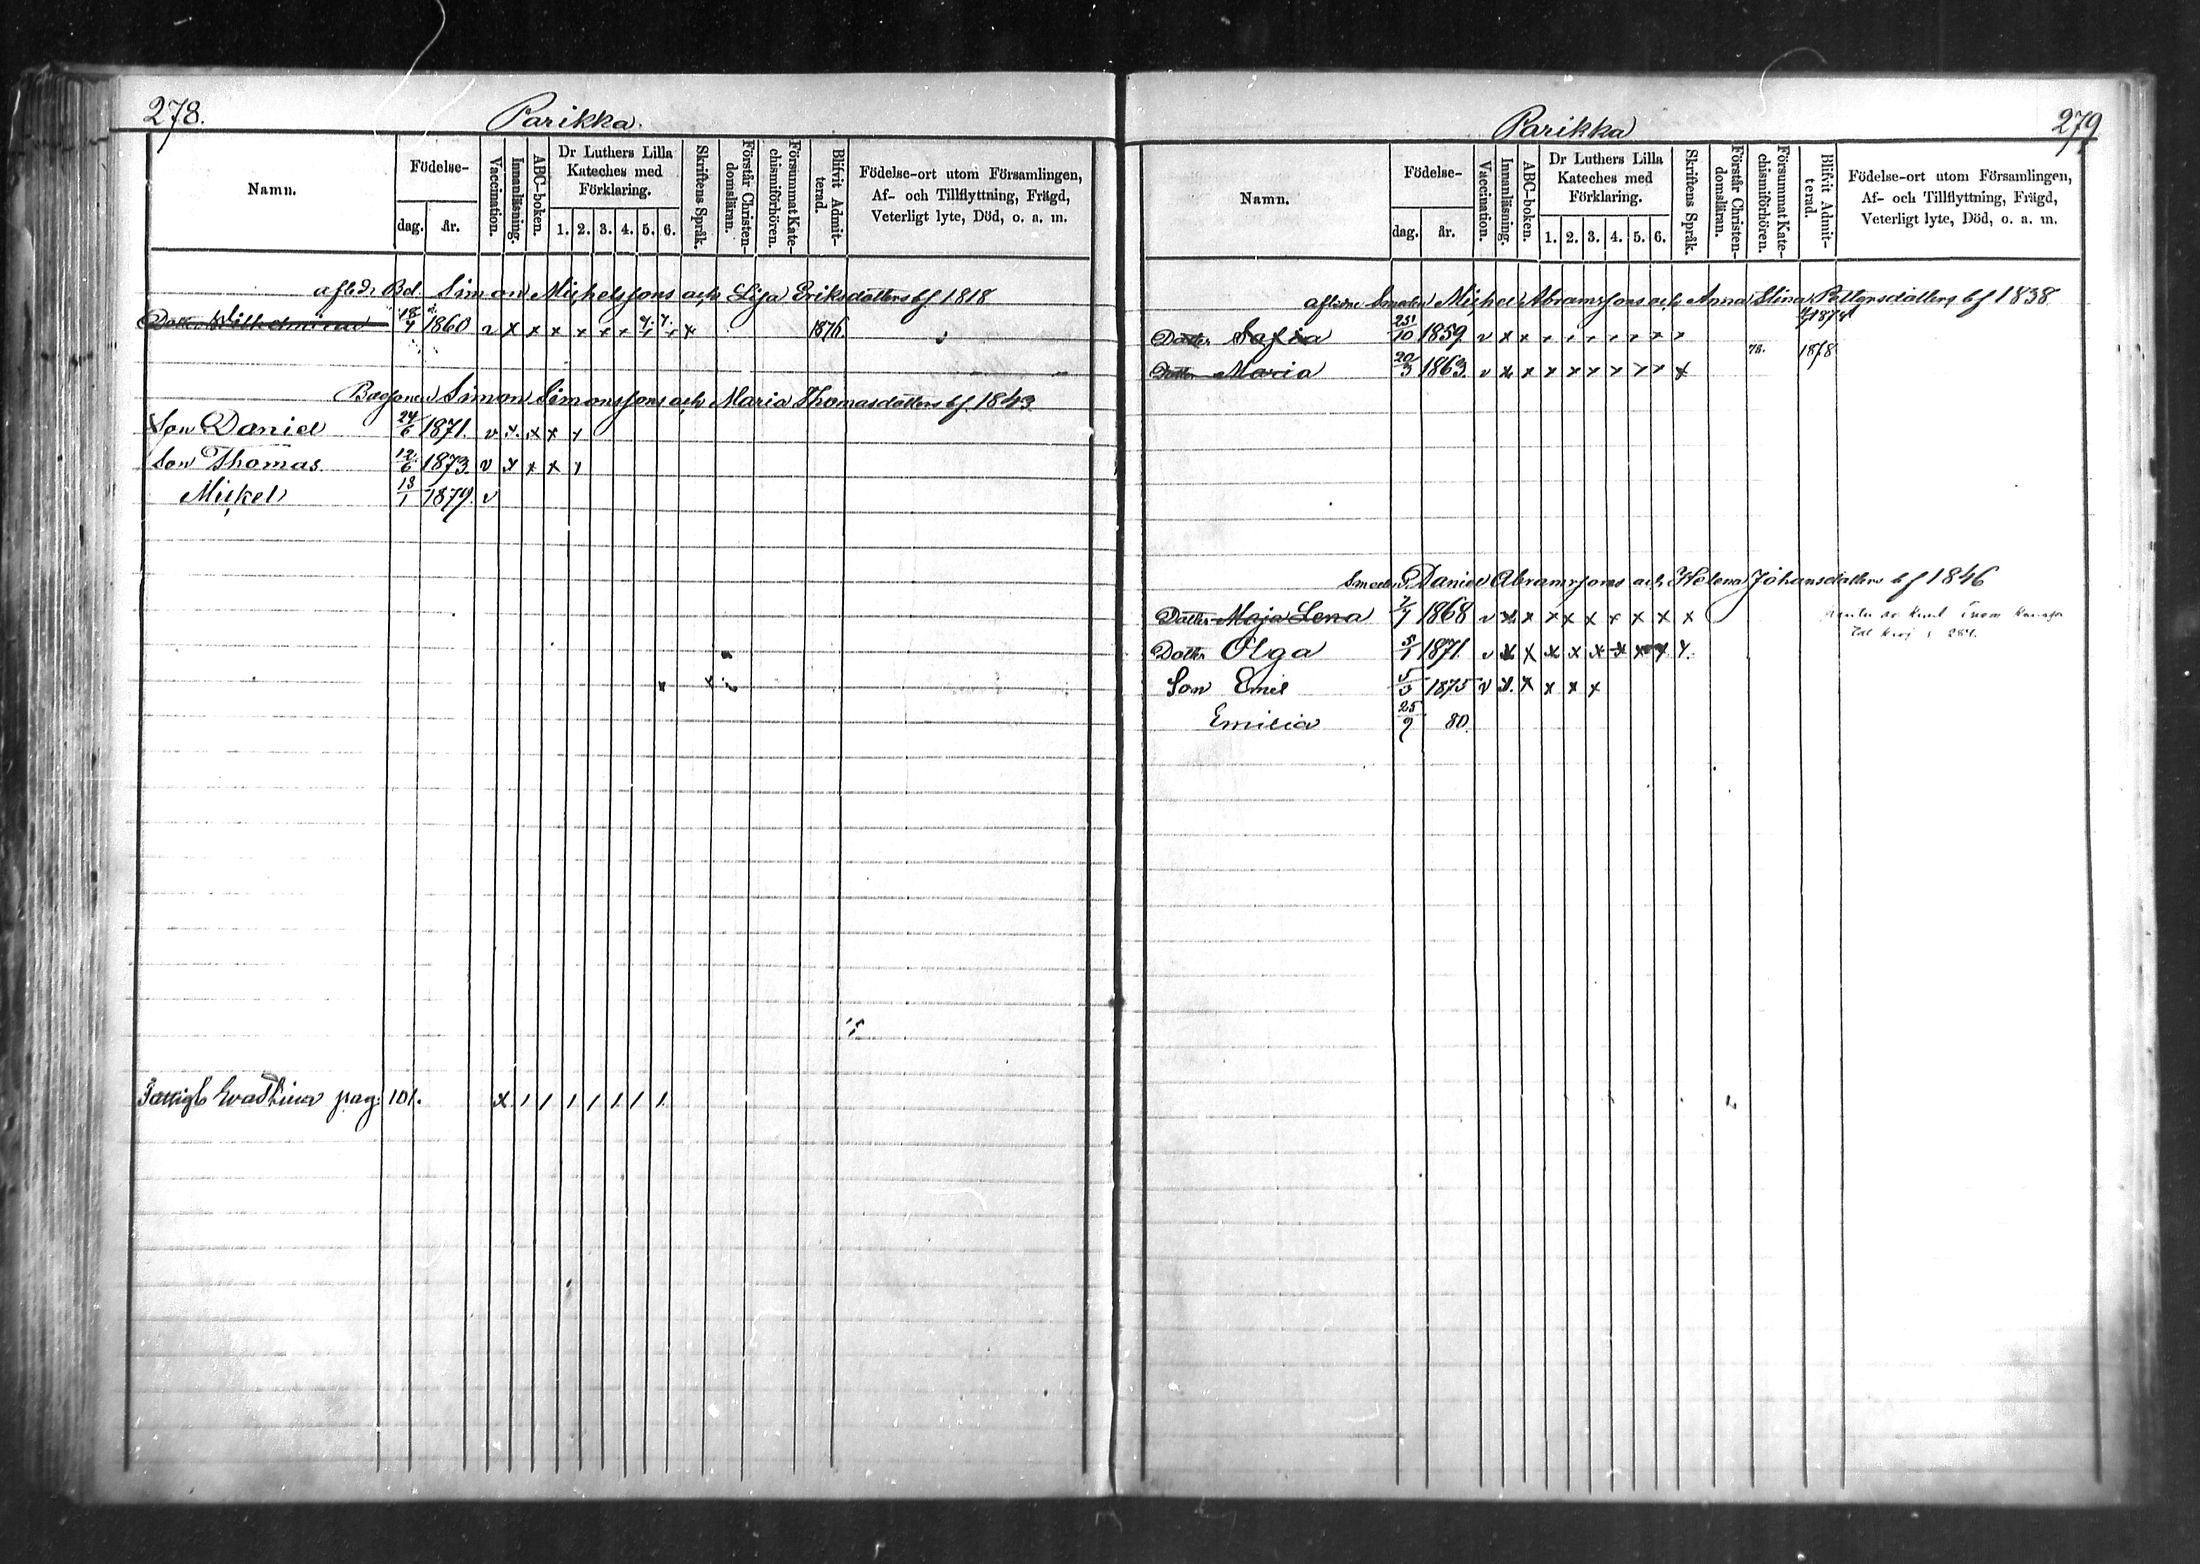 278. Parikka.
Namn. Födelse- dag. år. Vaccination. Innanläsning. ABC-boken. Dr Luthers Lilla Kateches med Förklaring. 1. 2. 3. 4. 5. 6. Skriftens Språk. Förstår Christen-domsläran. Försummat Kate-chismiförhören. Blifvit Admit-terad. Födelse-ort utom Församlingen, Af- och Tillflyttning, Frägd, Veterligt lyte, Död, o. a. m.
Simon Michelssons och Lisa Eriksdotters bf 1818
Dotter Wilhelmina 18/4 1860 v x x x x x x x x 1876.
Simon Simonssons och Maria Thomasdotters bf 1843
Son Daniel 24/6 1871. v x x x x
Son Thomas 12/6 1873. v x x x x
Mickel 13/1 1879. v
Evastina pag. 101. x / / / / / / /
Parikka 279
Namn. Födelse- dag. år. Vaccination. Innanläsning. ABC-boken. Dr Luthers Lilla Kateches med Förklaring. 1. 2. 3. 4. 5. 6. Skriftens Språk. Förstår Christen-domsläran. Försummat Kate-chismiförhören. Blifvit Admit-terad. Födelse-ort utom Församlingen, Af- och Tillflyttning, Frägd, Veterligt lyte, Död, o. a. m.
aflidne Smeden Michel Abramssons och Anna Stina Pettersdotters bf 1838.
Dotter Sofia 25/10 1859. v x x 1878
Dotter Maria 20/3 1863. v x x x x x x x x x 78. 1878
Smeden Daniel Abramssons och Helena Johansdotters bf 1846
Dotter Maja Lena 7/7 1868 v x x x x x x x x x
284.
Dotter Olga 5/1 1871. v x x x x x x x x x
Son Emil 5/3 1875 v x x x x x
Emilia 25/9 80.